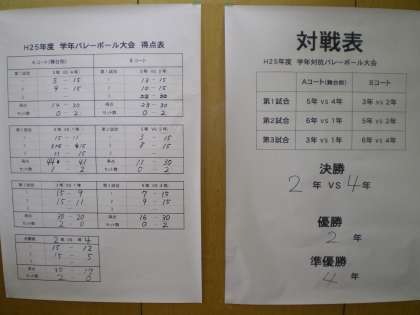 H25年度 学年バレーボール大会 得点表
Aコート(舞台側) Bコート
第1試合 5年 vs 4年 第1試合 3年 vs 2年
5 - 15
9 - 15 10 - 15
得点 14 - 30 得点 23 - 30
セット数 0 - 2 セット数 0 - 2
第2試合 第2試合
15 - 11 3 - 15
8 - 15
11 - 15
得点 得点 11 - 30
セット数 1 - 2 セット数 0 - 2
第3試合 3年 vs 1年 第3試合
15 - 9 7 - 15
15 - 11 9 - 15
得点 30 - 20 得点 16 - 30
セット数 2 - 0 セット数 0 - 2
決勝戦 2年 vs 4
15 - 12
15 - 5
得点 30 - 17
セット数 2 - 0
対戦表
H25年度 学年対抗バレーボール大会
Aコート(舞台側) Bコート
第1試合 5年 vs 4年 3年 vs 2年
第2試合 6年 vs 1年 5年 vs 2年
第3試合 3年 vs 1年 6年 vs 4年
決勝
2年 VS 4年
優勝
2年
準優勝
4年